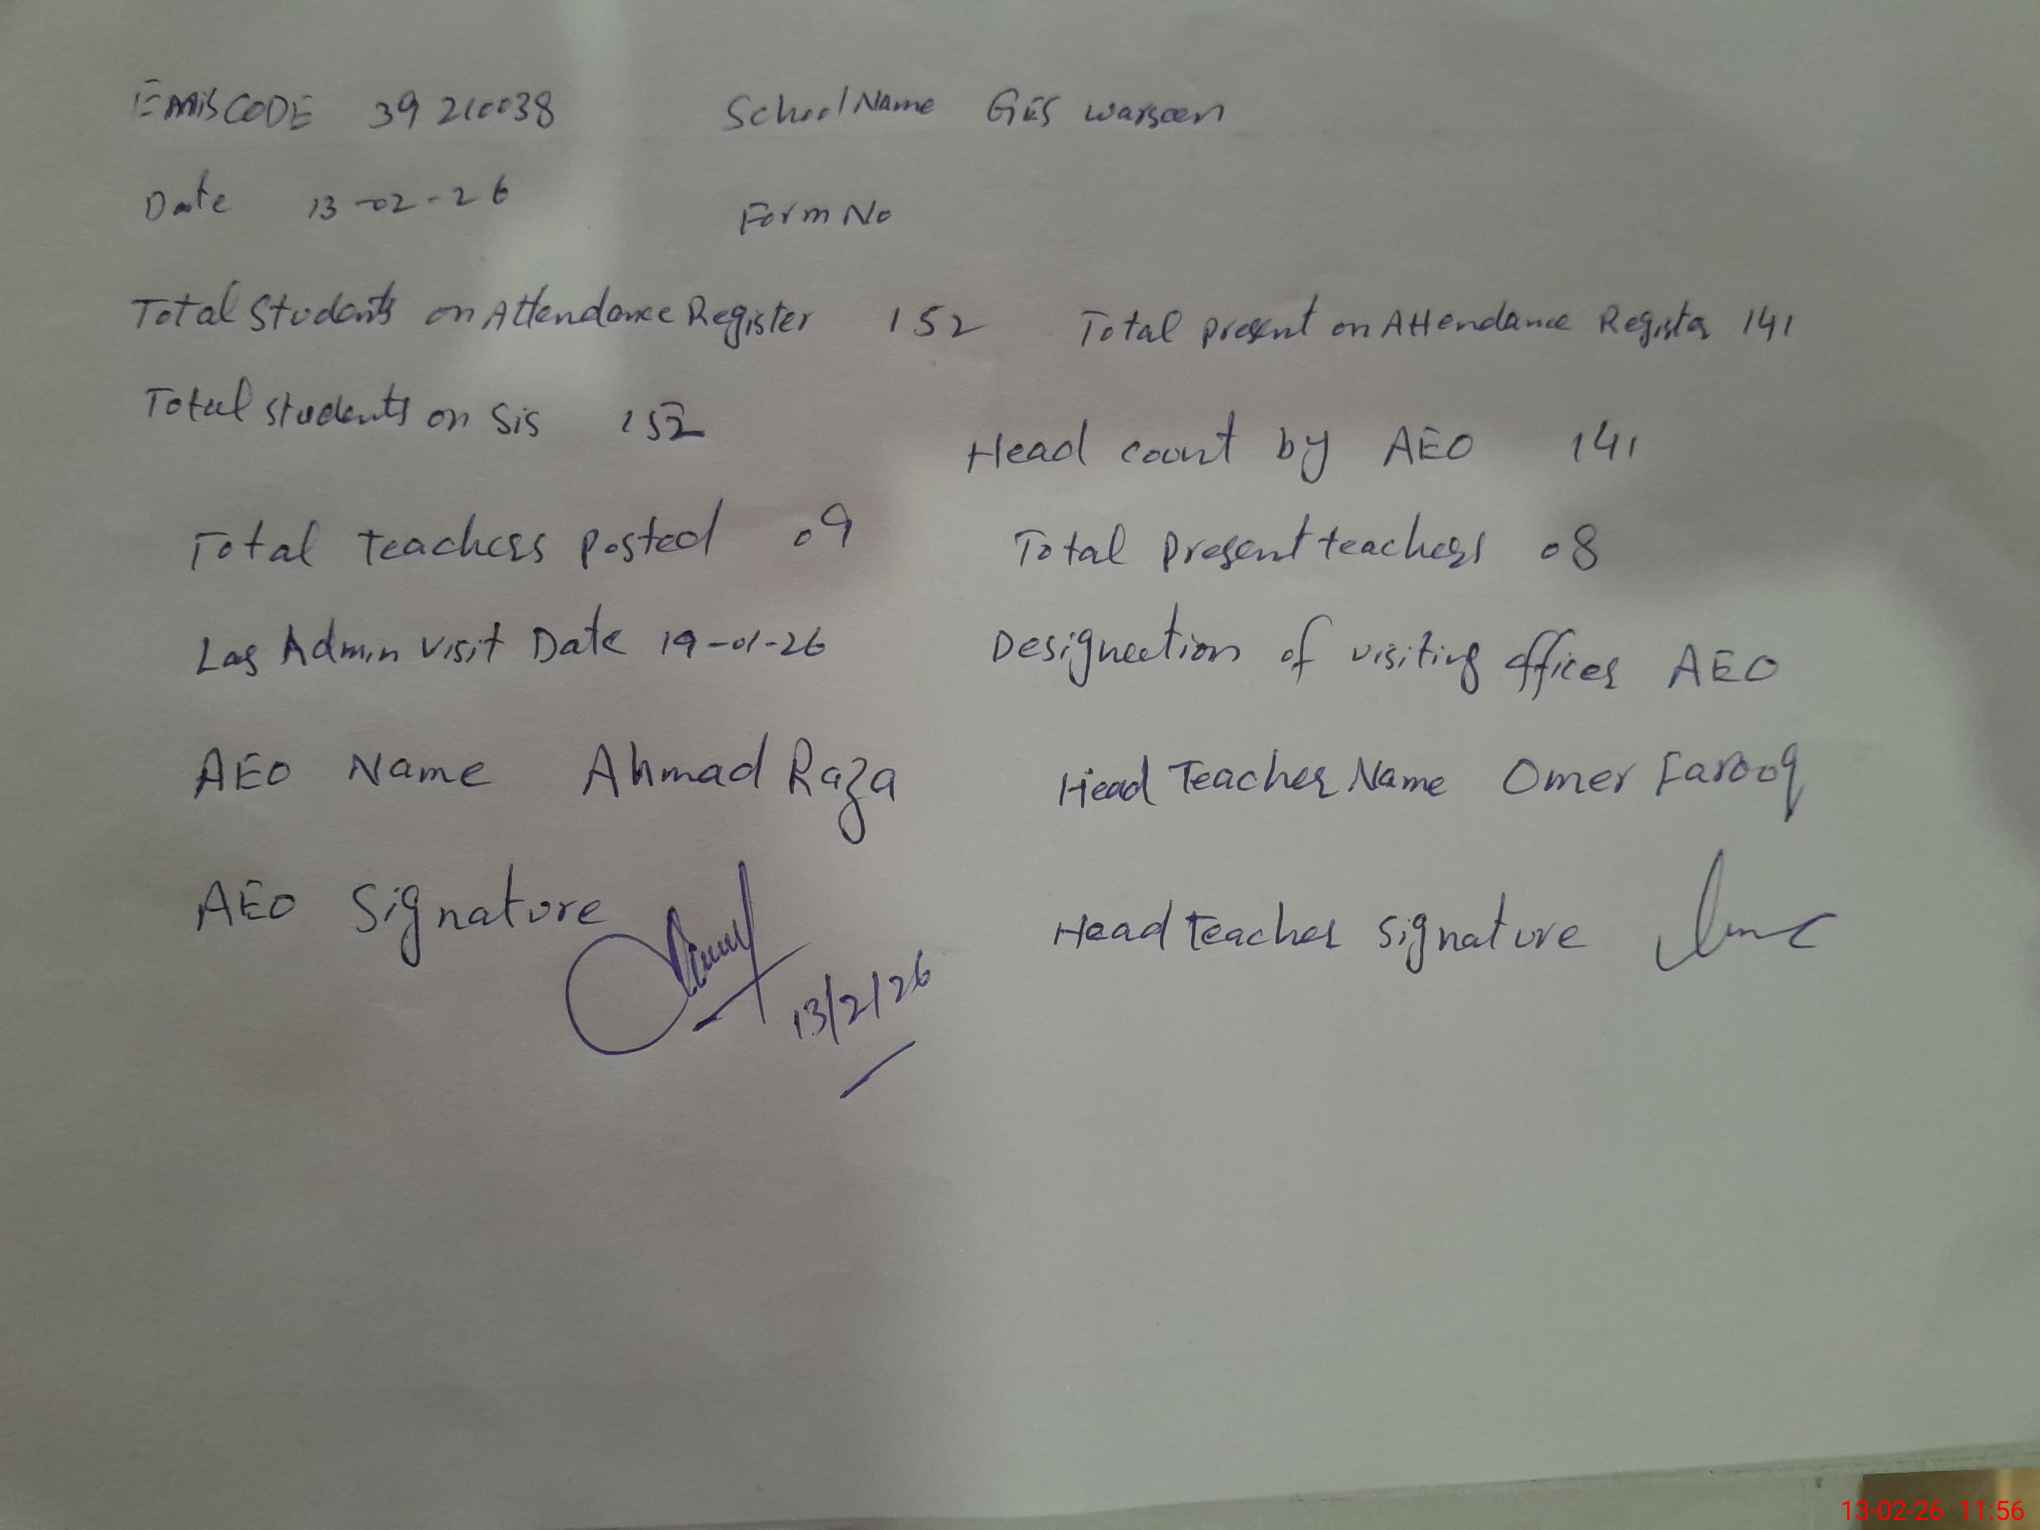 EMIS CODE 39210038 School Name GES warseen
Date 13-02-26 Form No
Total Students on Attendance Register 152 Total present on Attendance Register 141
Total students on Sis 152 Head count by AEO 141
Total teachers posted 09 Total Present teachers 08
Las Admin visit Date 19-01-26 Designection of visiting officer AEO
AEO Name Ahmad Raza Head Teacher Name Omer Farooq
AEO Signature Head teacher signature
13/2/26
13-02-26 11:56